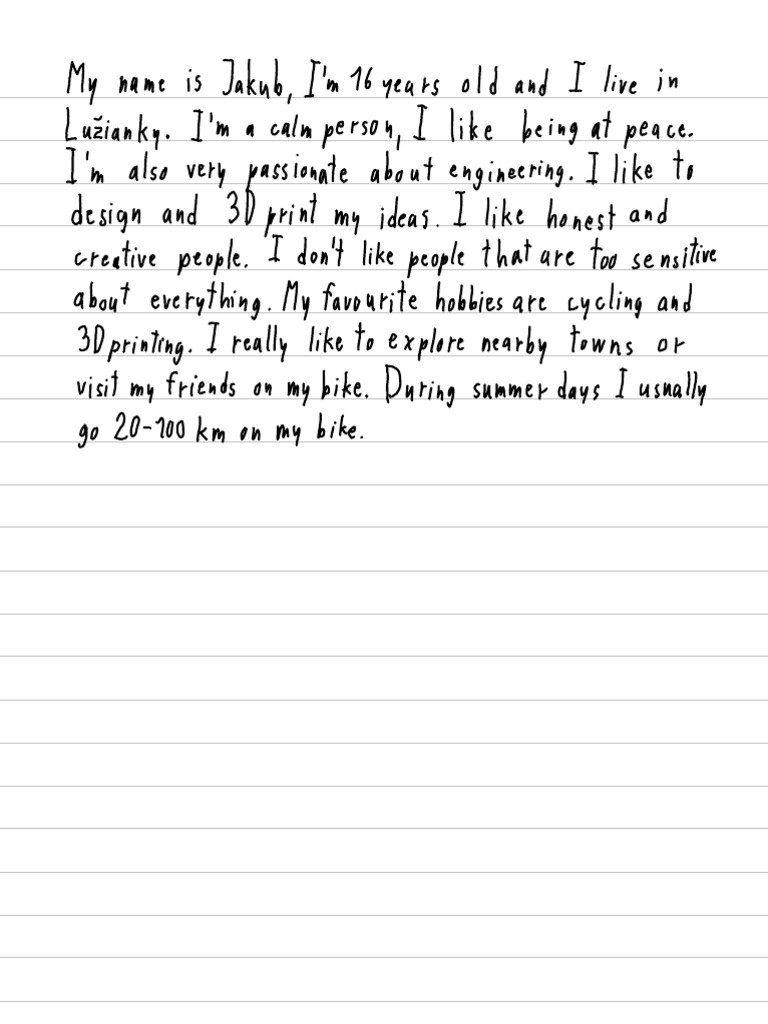 My name is Jakub, I'm 16 years old and I live in
Lužianky. I'm a calm person, I like being at peace.
I'm also very passionate about engineering. I like to
design and 3D print my ideas. I like honest and
creative people. I don't like people that are too sensitive
about everything. My favourite hobbies are cycling and
3D printing. I really like to explore nearby towns or
visit my friends on my bike. During summer days I usually
go 20-100 km on my bike.